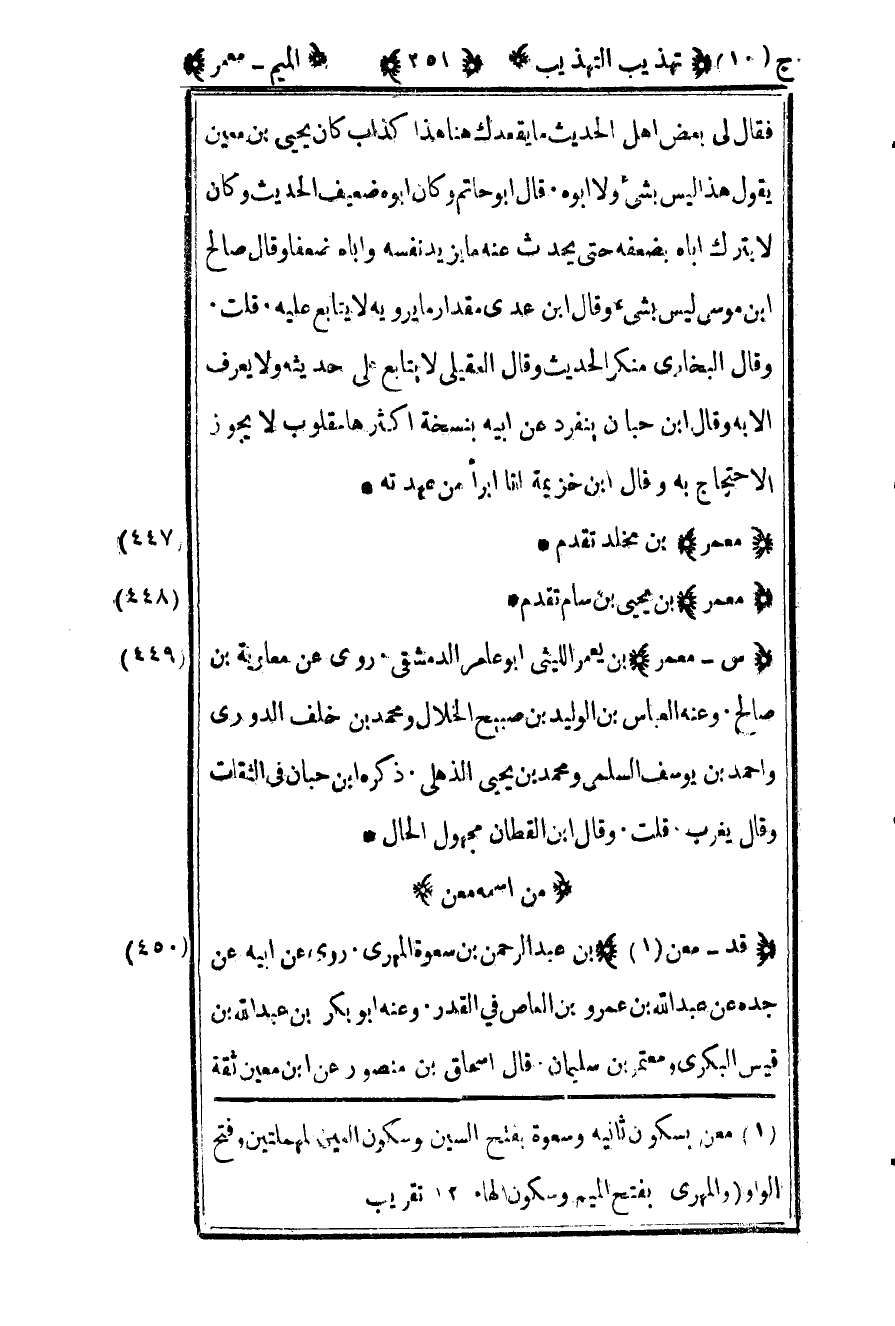 ج (١٠) ﴿ تهذيب التهذيب ﴾ ﴿ ٢٥١ ﴾ ﴿ الميم ـ معمر ﴾
فقال لى بعض اهل الحديث ما يقعدك هنا هذا كذاب كان يحيى بن معين
يقول هذا ليس بشئ ولا ابوه · قال ابو حاتم وكان ابوه ضعيف الحديث وكان
لا يترك اباه بضعفه حتى يحدث عنه ما يزيد نفسه واباه ضعفا وقال صالح
ابن موسى ليس بشىء وقال ابن عدى مقدار ما يرويه لا يتابع عليه · قلت ·
وقال البخارى منكر الحديث وقال العقيلى لا يتابع على حديثه ولا يعرف
الا به وقال ابن حبان ينفرد عن ابيه بنسخة اكثرها مقلوب لا يجوز
الاحتجاج به وقال ابن خزيمة انا ابرأ من عهدته •
(٤٤٧) ﴿ معمر ﴾ بن مخلد تقدم •
(٤٤٨) ﴿ معمر ﴾ بن يحيى بن سام تقدم •
(٤٤٩) ﴿ س ـ معمر ﴾ بن يعمر الليثى ابو عامر الدمشقى · روى عن معاوية بن
صالح · وعنه العباس بن الوليد بن صبيح الخلال ومحمد بن خلف الدورى
واحمد بن يوسف السلمى ومحمد بن يحيى الذهلى · ذكره ابن حبان فى الثقات
وقال يغرب · قلت · وقال ابن القطان مجهول الحال •
﴿ من اسمه معن ﴾
(٤٥٠) ﴿ قد ـ معن (١) ﴾ بن عبد الرحمن بن سعوة المهرى · روى عن ابيه عن
جده عن عبد الله بن عمرو بن العاص في القدر · وعنه ابو بكر بن عبد الله بن
قيس البكرى ومعتمر بن سليمان · قال اسحاق بن منصور عن ابن معين ثقة
(١) معن بسكون ثانيه وسعوة بفتح السين وسكون العين المهملتين وفتح
الواو (والمهرى بفتح الميم وسكون الهاء ١٢ تقريب